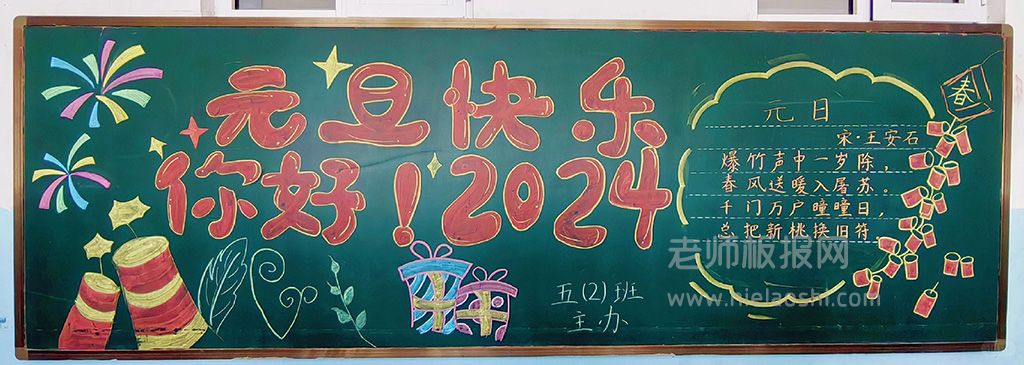 元旦快乐
你好！2024
五(2)班
主办
元日
宋·王安石
爆竹声中一岁除，
春风送暖入屠苏。
千门万户曈曈日，
总把新桃换旧符。
春
老师板报网
www.hielaoshi.com